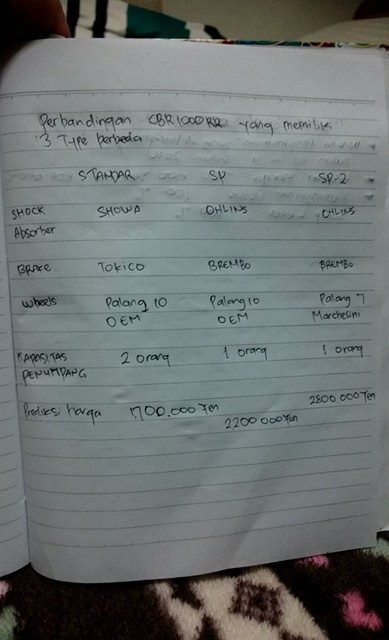 Perbandingan CBR1000RR yang memiliki
3 Type berbeda
STANDAR SP SP-2
SHOCK Absorber SHOWA OHLINS OHLINS
BRAKE TOKICO BREMBO BREMBO
Wheels Palang 10 Palang 10 Palang 7
OEM OEM Marchesini
KAPASITAS PENUMPANG 2 orang 1 orang 1 orang
Prediksi harga 1.700.000 Yen 2200 000 Yen 2800 000 Yen